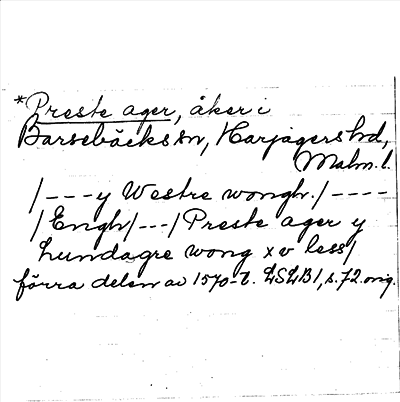 *Preste ager, åker i
Barsebäcks sn, Harjagers hd,
Malm. l.
/---y Westre wongh./----
/Engh/---/Preste ager y
hundagre wong x v less/
förra delen av 1570-t. LSLB1, s. 72. orig.